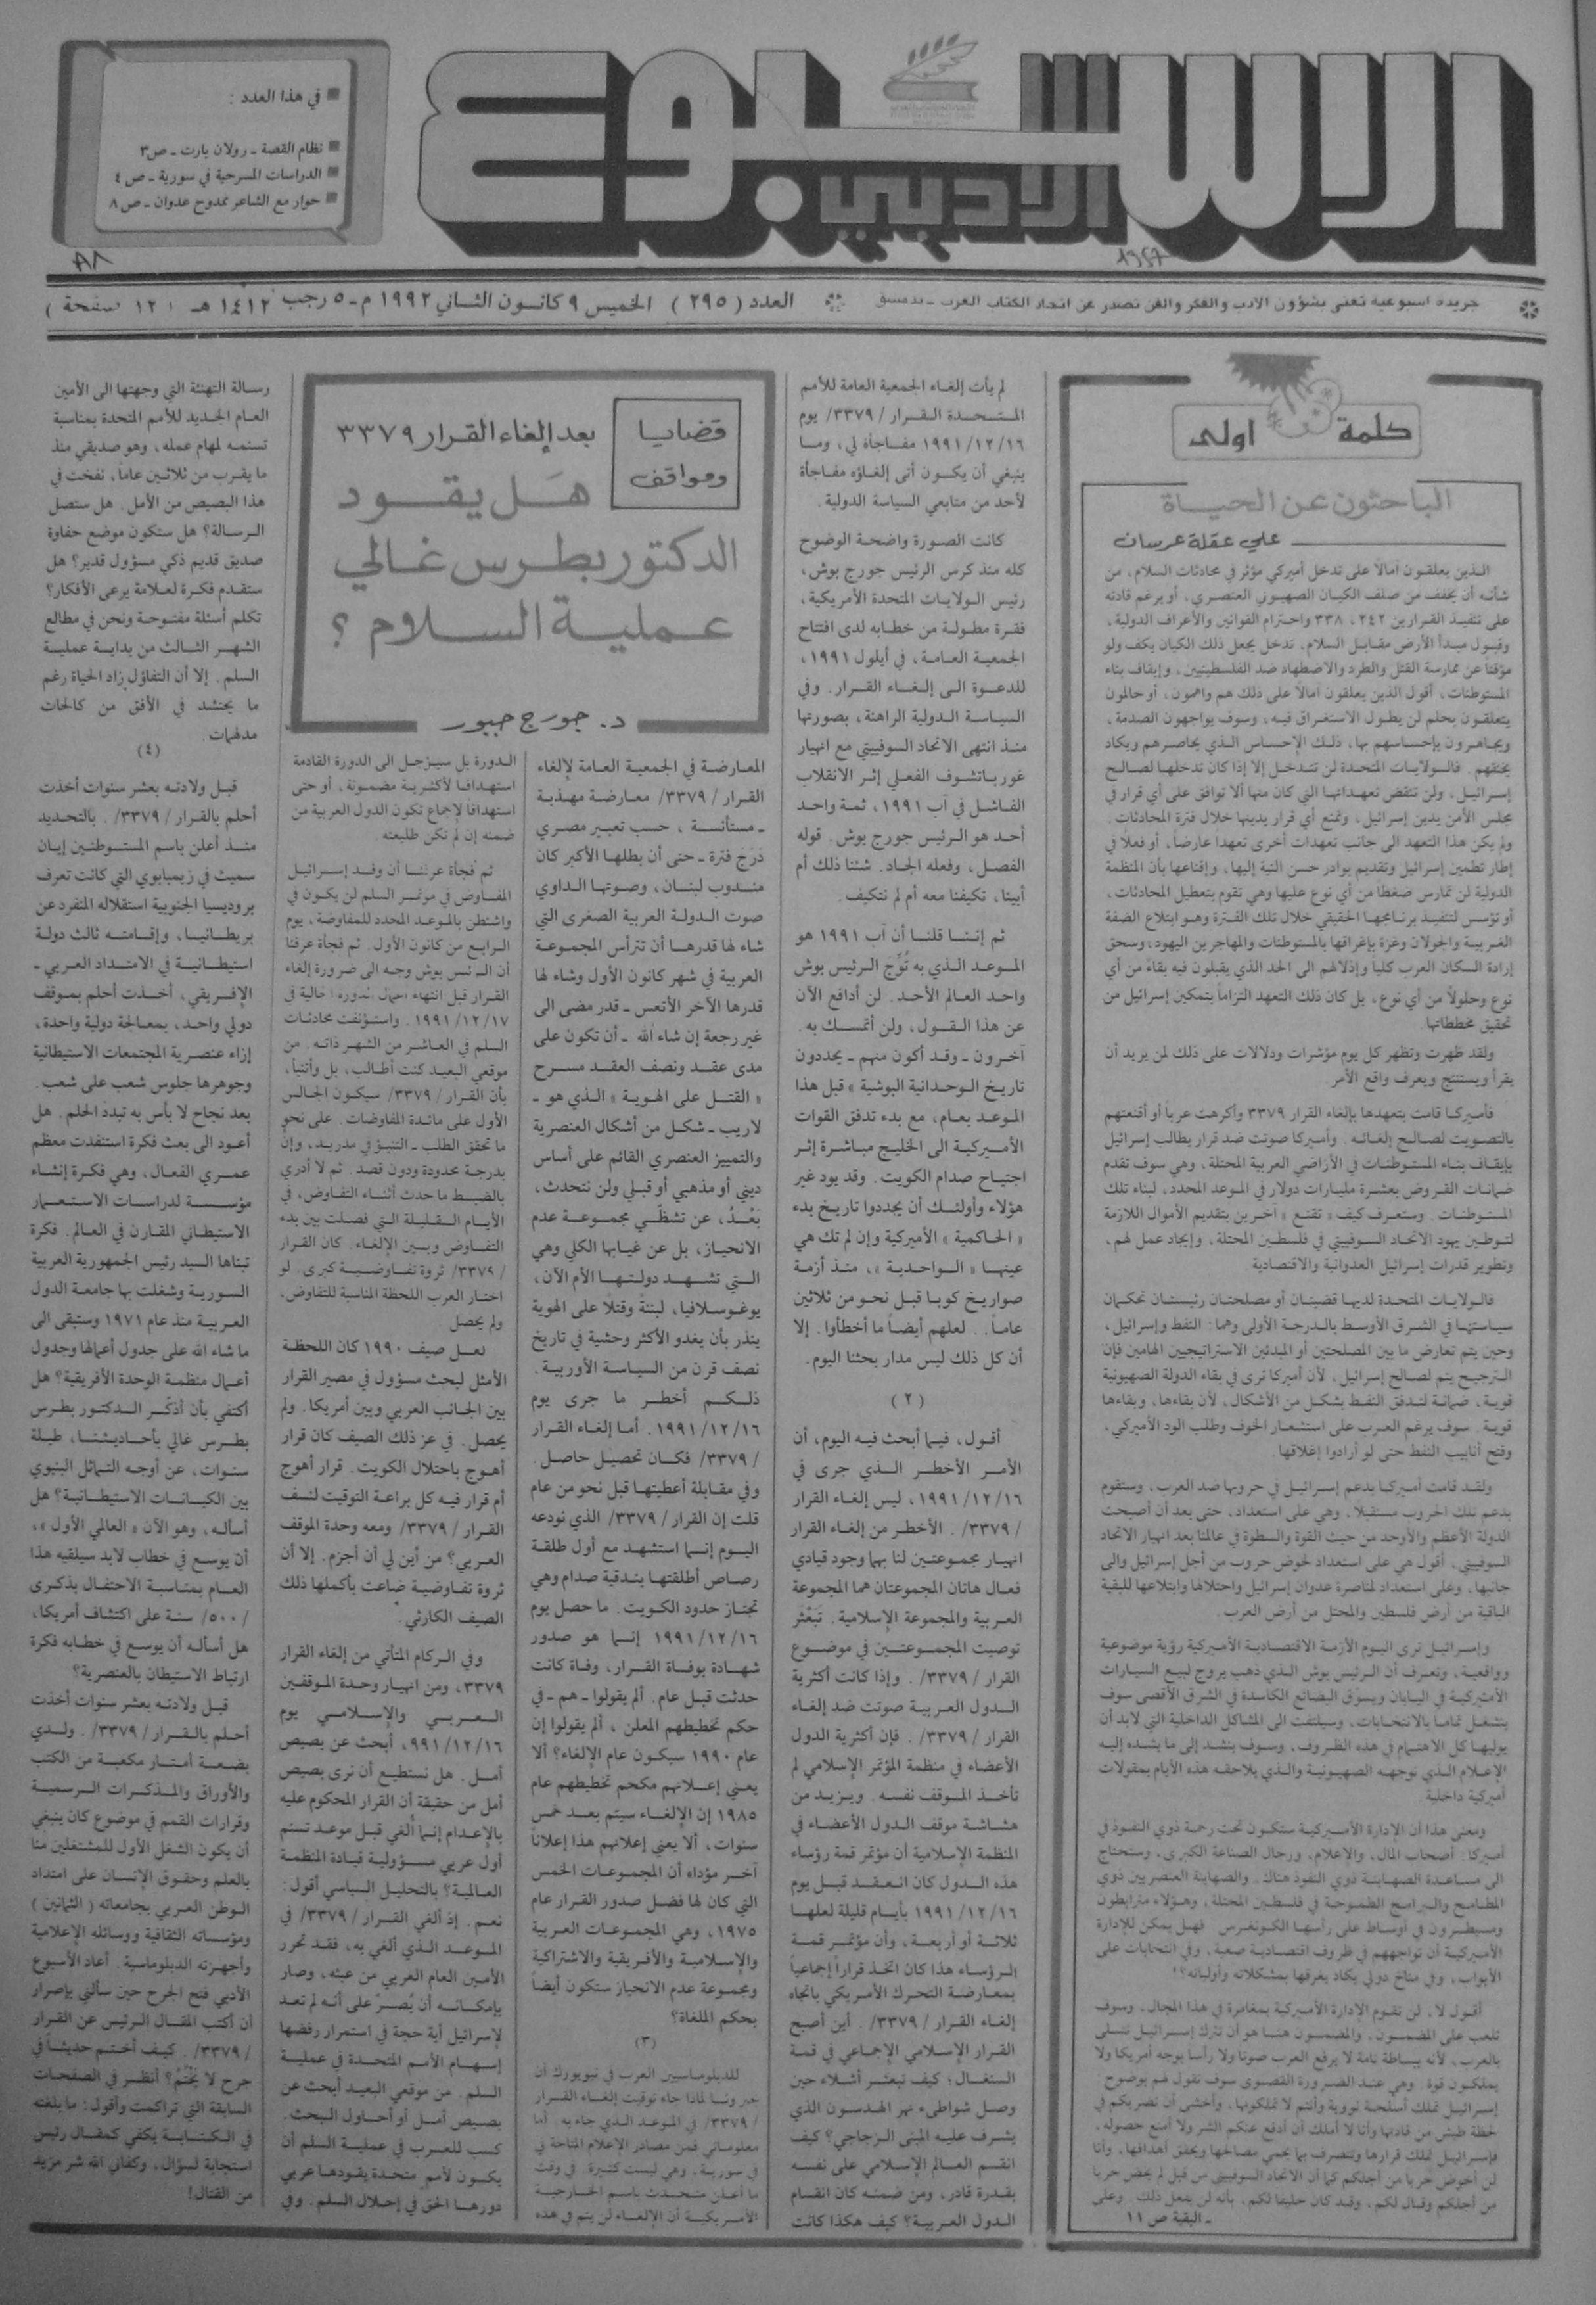 الاسبوع
الأدبي
■ في هذا العدد :
■ نظام القصة ـ رولان بارت ـ ص٣
■ الدراسات المسرحية في سورية ـ ص ٤
■ حوار مع الشاعر ممدوح عدوان ـ ص ٨
جريدة اسبوعية تعنى بشؤون الأدب والفكر والفن تصدر عن اتحاد الكتاب العرب ـ بدمشق
العدد ( ٢٩٥ ) الخميس ٩ كانون الثاني ١٩٩٢ م ـ ٥ رجب ١٤١٢ هـ ( ١٢ صفحة )
كلمة اولى
الباحثون عن الحياة
علي عقلة عرسان
الذين يعلقون آمالاً على تدخل أميركي مؤثر في محادثات السلام، من
شأنه أن يخفف من صلف الكيان الصهيوني العنصري، أو يرغم قادته
على تنفيذ القرارين ٢٤٢، ٣٣٨ واحترام القوانين والأعراف الدولية،
وقبول مبدأ الأرض مقابل السلام، تدخل يجعل ذلك الكيان يكف ولو
مؤقتاً عن ممارسة القتل والطرد والاضطهاد ضد الفلسطينيين، وإيقاف بناء
المستوطنات، أقول الذين يعلقون آمالاً على ذلك هم واهمون، أو حالمون
يتعلقون بحلم لن يطول الاستغراق فيه، وسوف يواجهون الصدمة،
ويجاهرون بإحساسهم بها، ذلك الإحساس الذي يحاصرهم ويكاد
يخنقهم. فالولايات المتحدة لن تتدخل إلا إذا كان تدخلها لصالح
إسرائيل، ولن تنقض تعهداتها التي كان منها ألا توافق على أي قرار في
مجلس الأمن يدين إسرائيل، وتمنع أي قرار يدينها خلال فترة المحادثات.
ولم يكن هذا التعهد الى جانب تعهدات أخرى تعهداً عارضاً، أو فعلاً في
إطار تطمين إسرائيل وتقديم بوادر حسن النية إليها، وإقناعها بأن المنظمة
الدولية لن تمارس ضغطاً من أي نوع عليها وهي تقوم بتعطيل المحادثات،
أو تؤسس لتنفيذ برنامجها الحقيقي خلال تلك الفترة وهو ابتلاع الضفة
الغربية والجولان وغزة بإغراقها بالمستوطنات والمهاجرين اليهود، وسحق
إرادة السكان العرب كلياً وإذلالهم الى الحد الذي يقبلون فيه بقاءً من أي
نوع وحلولاً من أي نوع، بل كان ذلك التعهد التزاماً بتمكين إسرائيل من
تحقيق مخططاتها
ولقد ظهرت وتظهر كل يوم مؤشرات ودلالات على ذلك لمن يريد أن
يقرأ ويستنتج ويعرف واقع الأمر.
فأميركا قامت بتعهدها بإلغاء القرار ٣٣٧٩ وأكرهت عرباً أو أقنعتهم
بالتصويت لصالح إلغائه. وأميركا صوتت ضد قرار يطالب إسرائيل
بإيقاف بناء المستوطنات في الأراضي العربية المحتلة، وهي سوف تقدم
ضمانات القروض بعشرة مليارات دولار في الموعد المحدد، لبناء تلك
المستوطنات. وستعرف كيف « تقنع » آخرين بتقديم الأموال اللازمة
لتوطين يهود الاتحاد السوفييتي في فلسطين المحتلة، وإيجاد عمل لهم،
وتطوير قدرات إسرائيل العدوانية والاقتصادية
فالولايات المتحدة لديها قضيتان أو مصلحتان رئيستان تحكمان
سياستها في الشرق الأوسط بالدرجة الأولى وهما: النفط وإسرائيل،
وحين يتم تعارض ما بين المصلحتين أو المبدئين الاستراتيجيين الهامين فإن
الترجيح يتم لصالح إسرائيل، لأن أميركا ترى في بقاء الدولة الصهيونية
قوية، ضمانة لتدفق النفط بشكل من الأشكال، لأن بقاءها، وبقاءها
قوية. سوف يرغم العرب على استشعار الخوف وطلب الود الأميركي،
وفتح أنابيب النفط حتى لو أرادوا إغلاقها.
ولقد قامت أميركا بدعم إسرائيل في حروبها ضد العرب، وستقوم
بدعم تلك الحروب مستقبلاً، وهي على استعداد، حتى بعد أن أصبحت
الدولة الأعظم والأوحد من حيث القوة والسطوة في عالمنا بعد انهيار الاتحاد
السوفييتي، أقول هي على استعداد لخوض حروب من أجل إسرائيل وإلى
جانبها، وعلى استعداد لمناصرة عدوان إسرائيل واحتلالها وابتلاعها للبقية
الباقية من أرض فلسطين والمحتل من أرض العرب.
وإسرائيل ترى اليوم الأزمة الاقتصادية الأميركية رؤية موضوعية
وواقعية، وتعرف أن الرئيس بوش الذي ذهب يروج لبيع السيارات
الأميركية في اليابان ويسوّق البضائع الكاسدة في الشرق الأقصى سوف
ينشغل تماماً بالانتخابات، وسيلتفت الى المشاكل الداخلية التي لابد أن
يوليها كل الاهتمام في هذه الظروف، وسوف ينشد إلى ما يشده إليه
الإعلام الذي توجهه الصهيونية والذي يلاحقه هذه الأيام بمقولات
أميركية داخلية
ومعنى هذا أن الإدارة الأميركية ستكون تحت رحمة ذوي النفوذ في
أميركا: أصحاب المال، والإعلام، ورجال الصناعة الكبرى، وستحتاج
الى مساعدة الصهاينة ذوي النفوذ هناك. والصهاينة العنصريين ذوي
المطامح والبرامج الطموحة في فلسطين المحتلة، وهؤلاء مترابطون
ومسيطرون في أوساط على رأسها الكونغرس. فهل يمكن للإدارة
الأميركية أن تواجههم في ظروف اقتصادية صعبة، وفي انتخابات على
الأبواب، وفي مناخ دولي يكاد يغرقها بمشكلاته وأولياته؟!
أقول لا، لن تقوم الإدارة الأميركية بمغامرة في هذا المجال، وسوف
تلعب على المضمون، والمضمون هنا هو أن تترك إسرائيل تتسلى
بالعرب، لأنه ببساطة تامة لا يرفع العرب صوتاً ولا رأساً بوجه أمريكا ولا
يملكون قوة. وهي عند الضرورة القصوى سوف تقول لهم بوضوح:
إسرائيل تملك أسلحة نووية وأنتم لا تملكونها، وأخشى أن تضربكم في
لحظة طيش من قادتها وأنا لا أملك أن أدفع عنكم الشر ولا أمنع حصوله.
فإسرائيل تملك قرارها وتتصرف بما يحمي مصالحها ويحقق أهدافها، وأنا
لن أخوض حرباً من أجلكم كما أن الاتحاد السوفييتي من قبل لم يخض حرباً
من أجلكم وقال لكم، وقد كان حليفاً لكم، بأنه لن يفعل ذلك. وعلى
ـ البقية ص ١١
قضايا
ومواقف
بعد إلغاء القرار ٣٣٧٩
هَل يقود
الدكتور بطرس غالي
عملية السلام ؟
د. جورج جبور
لم يأت إلغاء الجمعية العامة للأمم
المتحدة القرار /٣٣٧٩/ يوم
١٩٩١/١٢/١٦ مفاجأة لي، وما
ينبغي أن يكون أتى إلغاؤه مفاجأة
لأحد من متابعي السياسة الدولية.
كانت الصورة واضحة الوضوح
كله منذ كرس الرئيس جورج بوش،
رئيس الولايات المتحدة الأمريكية،
فقرة مطولة من خطابه لدى افتتاح
الجمعية العامة، في أيلول ١٩٩١،
للدعوة الى إلغاء القرار. وفي
السياسة الدولية الراهنة، بصورتها
منذ انتهى الاتحاد السوفييتي مع انهيار
غورباتشوف الفعلي إثر الانقلاب
الفاشل في آب ١٩٩١، ثمة واحد
أحد هو الرئيس جورج بوش. قوله
الفصل، وفعله الجاد. شئنا ذلك أم
أبينا، تكيفنا معه أم لم نتكيف.
ثم إننا قلنا أن آب ١٩٩١ هو
الموعد الذي به تُوِّج الرئيس بوش
واحد العالم الأحد. لن أدافع الآن
عن هذا القول، ولن أتمسك به.
آخرون ـ وقد أكون منهم ـ يحددون
تاريخ الوحدانية البوشية » قبل هذا
الموعد بعام، مع بدء تدفق القوات
الأميركية الى الخليج مباشرة إثر
اجتياح صدام الكويت. وقد يود غير
هؤلاء وأولئك أن يحددوا تاريخ بدء
« الحاكمية » الأميركية وإن لم تك هي
عينها « الواحدية »، منذ أزمة
صواريخ كوبا قبل نحو من ثلاثين
عاماً.. لعلهم أيضاً ما أخطأوا. إلا
أن كل ذلك ليس مدار بحثنا اليوم.
( ٢ )
أقول، فيما أبحث فيه اليوم، أن
الأمر الأخطر الذي جرى في
١٩٩١/١٢/١٦، ليس إلغاء القرار
/٣٣٧٩/. الأخطر من إلغاء القرار
انهيار مجموعتين لنا بهما وجود قيادي
فعال هاتان المجموعتان هما المجموعة
العربية والمجموعة الإسلامية. تَبَعْثَر
توصيت المجموعتين في موضوع
القرار /٣٣٧٩/. وإذا كانت أكثرية
الدول العربية صوتت ضد إلغاء
القرار /٣٣٧٩/. فإن أكثرية الدول
الأعضاء في منظمة المؤتمر الإسلامي لم
تأخذ الموقف نفسه. ويزيد من
هشاشة موقف الدول الأعضاء في
المنظمة الإسلامية أن مؤتمر قمة رؤساء
هذه الدول كان انعقد قبل يوم
١٩٩١/١٢/١٦ بأيام قليلة لعلها
ثلاثة أو أربعة، وأن مؤتمر قمة
الرؤساء هذا كان اتخذ قراراً إجماعياً
بمعارضة التحرك الأمريكي باتجاه
إلغاء القرار /٣٣٧٩/. أين أصبح
القرار الإسلامي الإجماعي في قمة
السنغال؛ كيف تبعثر أشلاء حين
وصل شواطىء نهر الهدسون الذي
يشرف عليه المبنى الزجاجي؟ كيف
انقسم العالم الإسلامي على نفسه
بقدرة قادر، ومن ضمنه كان انقسام
الدول العربية؟ كيف هكذا كانت
المعارضة في الجمعية العامة لإلغاء
القرار /٣٣٧٩/ معارضة مهذبة
ـ مستأنسة، حسب تعبير مصري
دَرَج فترة ـ حتى أن بطلها الأكبر كان
مندوب لبنان، وصوتها الداوي
صوت الدولة العربية الصغرى التي
شاء لها قدرها أن تترأس المجموعة
العربية في شهر كانون الأول وشاء لها
قدرها الآخر الأتعس ـ قدر مضى الى
غير رجعة إن شاء الله ـ أن تكون على
مدى عقد ونصف العقد مسرح
« القتل على الهوية » الذي هو ـ
لاريب ـ شكل من أشكال العنصرية
والتمييز العنصري القائم على أساس
ديني أو مذهبي أو قبلي ولن نتحدث،
بَعْدُ، عن تشظّي مجموعة عدم
الانحياز، بل عن غيابها الكلي وهي
التي تشهد دولتها الأم الآن،
يوغوسلافيا، لبننةً وقتلاً على الهوية
ينذر بأن يغدو الأكثر وحشية في تاريخ
نصف قرن من السياسة الأوربية.
ذلكم أخطر ما جرى يوم
١٩٩١/١٢/١٦. أما إلغاء القرار
/٣٣٧٩/ فكان تحصيل حاصل.
وفي مقابلة أعطيتها قبل نحو من عام
قلت إن القرار /٣٣٧٩/ الذي نودعه
اليوم إنما استشهد مع أول طلقة
رصاص أطلقتها بندقية صدام وهي
تجتاز حدود الكويت. ما حصل يوم
١٩٩١/١٢/١٦ إنما هو صدور
شهادة بوفاة القرار، وفاة كانت
حدثت قبل عام. ألم يقولوا ـ هم ـ في
حكم تخطيطهم المعلن، ألم يقولوا إن
عام ١٩٩٠ سيكون عام الإلغاء؟ ألا
يعني إعلانهم مكحم تخطيطهم عام
١٩٨٥ إن الإلغاء سيتم بعد خمس
سنوات، ألا يعني إعلانهم هذا إعلاناً
آخر مؤداه أن المجموعات الخمس
التي كان لها فضل صدور القرار عام
١٩٧٥، وهي المجموعات العربية
والإسلامية والأفريقية والاشتراكية
ومجموعة عدم الانحياز ستكون أيضاً
بحكم الملغاة؟
(٣)
للدبلوماسيين العرب في نيويورك أن
يخبرونا لماذا جاء توقيت إلغاء القرار
/٣٣٧٩/ في الموعد الذي جاء به. أما
معلوماتي فمن مصادر الإعلام المتاحة في
في سورية، وهي ليست كثيرة. في وقت
ما أعلن متحدث باسم الخارجية
الأمريكية أن الإلغاء لن يتم في هذه
الدورة بل سيؤجل الى الدورة القادمة
استهدافاً لأكثرية مضمونة، أو حتى
استهدافاً لإجماع تكون الدول العربية من
ضمنه إن لم تكن طليعته
ثم فجأة عرفنا أن وفد إسرائيل
المفاوض في مؤتمر السلم لن يكون في
واشنطن بالموعد المحدد للمفاوضة، يوم
الرابع من كانون الأول. ثم فجأة عرفنا
أن الرئيس بوش وجه الى ضرورة إلغاء
القرار قبل انتهاء أعمال الدورة الحالية في
١٩٩١/١٢/١٧. واستؤنفت محادثات
السلم في العاشر من الشهر ذاته. من
موقعي البعيد كنت أطالب، بل وأتنبأ،
بأن القرار /٣٣٧٩/ سيكون الجالس
الأول على مائدة المفاوضات. على نحو
ما تحقق الطلب ـ التنبؤ في مدريد، وإن
بدرجة محدودة ودون قصد. ثم لا أدري
بالضبط ما حدث أثناء التفاوض، في
الأيام القليلة التي فصلت بين بدء
التفاوض وبين الإلغاء. كان القرار
/٣٣٧٩/ ثروة تفاوضية كبرى. لو
اختار العرب اللحظة المناسبة للتفاوض،
ولم يحصل
لعل صيف ١٩٩٠ كان اللحظة
الأمثل لبحث مسؤول في مصير القرار
بين الجانب العربي وبين أمريكا. ولم
يحصل. في عز ذلك الصيف كان قرار
أهوج باحتلال الكويت. قرار أهوج
أم قرار فيه كل براعة التوقيت لنسف
القرار /٣٣٧٩/ ومعه وحدة الموقف
العربي؟ من أين لي أن أجزم. إلا أن
ثروة تفاوضية ضاعت بأكملها ذلك
الصيف الكارثي.
وفي الركام المتأتي من إلغاء القرار
٣٣٧٩، ومن انهيار وحدة الموقفين
العربي والإسلامي يوم
٩٩١/١٢/١٦، أبحث عن بصيص
أمل. هل نستطيع أن نرى بصيص
أمل من حقيقة أن القرار المحكوم عليه
بالإعدام إنما ألغي قبل موعد تسنم
أول عربي مسؤولية قيادة المنظمة
العالمية؟ بالتحليل السياسي أقول:
نعم. إذ ألغي القرار /٣٣٧٩/ في
الموعد الذي ألغي به، فقد تحرر
الأمين العام العربي من عبئه، وصار
بإمكانه أن يُصرّ على أنه لم تعد
لإسرائيل أية حجة في استمرار رفضها
إسهام الأمم المتحدة في عملية
السلم. من موقعي البعيد أبحث عن
بصيص أمل أو أحاول البحث.
كسب للعرب في عملية السلم أن
يكون لأمم متحدة يقودها عربي
دورها الحق في إحلال السلم. وفي
رسالة التهنئة التي وجهتها الى الأمين
العام الجديد للأمم المتحدة بمناسبة
تسنمه لمهام عمله، وهو صديقي منذ
ما يقرب من ثلاثين عاماً، نفخت في
هذا البصيص من الأمل. هل ستصل
الرسالة؟ هل ستكون موضع حفاوة
صديق قديم ذكي مسؤول قدير؟ هل
ستقدم فكرة لعلامة يرعى الأفكار؟
تكلم أسئلة مفتوحة ونحن في مطالع
الشهر الثالث من بداية عملية
السلم. إلا أن التفاؤل زاد الحياة رغم
ما يحتشد في الأفق من كالحات
مدلهمات.
(٤)
قبل ولادته بعشر سنوات أخذت
أحلم بالقرار /٣٣٧٩/. بالتحديد
منذ أعلن باسم المستوطنين إيان
سميث في زيمبابوي التي كانت تعرف
بروديسيا الجنوبية استقلاله المنفرد عن
بريطانيا، وإقامته ثالث دولة
استيطانية في الامتداد العربي ـ
الإفريقي، أخذت أحلم بموقف
دولي واحد، بمعالجة دولية واحدة،
إزاء عنصرية المجتمعات الاستيطانية
وجوهرها جلوس شعب على شعب.
بعد نجاح لا بأس به تبدد الحلم. هل
أعود الى بعث فكرة استنفدت معظم
عمري الفعال، وهي فكرة إنشاء
مؤسسة لدراسات الاستعمار
الاستيطاني المقارن في العالم. فكرة
تبناها السيد رئيس الجمهورية العربية
السورية وشغلت بها جامعة الدول
العربية منذ عام ١٩٧١ وستبقى الى
ما شاء الله على جدول أعمالها وجدول
أعمال منظمة الوحدة الأفريقية؟ هل
أكتفي بأن أذكّر الدكتور بطرس
بطرس غالي بأحاديثنا، طيلة
سنوات، عن أوجه التماثل البنيوي
بين الكيانات الاستيطانية؟ هل
أسأله، وهو الآن « العالمي الأول »،
أن يوسع في خطاب لابد سيلقيه هذا
العام بمناسبة الاحتفال بذكرى
/٥٠٠/ سنة على اكتشاف أمريكا،
هل أسأله أن يوسع في خطابه فكرة
ارتباط الاستيطان بالعنصرية؟
قبل ولادته بعشر سنوات أخذت
أحلم بالقرار /٣٣٧٩/. ولدي
بضعة أمتار مكعبة من الكتب
والأوراق والمذكرات الرسمية
وقرارات القمم في موضوع كان ينبغي
أن يكون الشغل الأول للمشتغلين منا
بالعلم وحقوق الإنسان على امتداد
الوطن العربي بجامعاته ( الثمانين )
ومؤسساته الثقافية ووسائله الإعلامية
وأجهزته الدبلوماسية. أعاد الأسبوع
الأدبي فتح الجرح حين سألني بإصرار
أن أكتب المقال الرئيس عن القرار
/٣٣٧٩/. كيف أختم حديثاً في
جرح لا يُخْتَمُ؟ أنظر في الصفحات
السابقة التي تراكمت وأقول: ما بلغته
في الكتابة يكفي كمقال رئيس
استجابة لسؤال، وكفاني الله شر مزيد
من القتال!